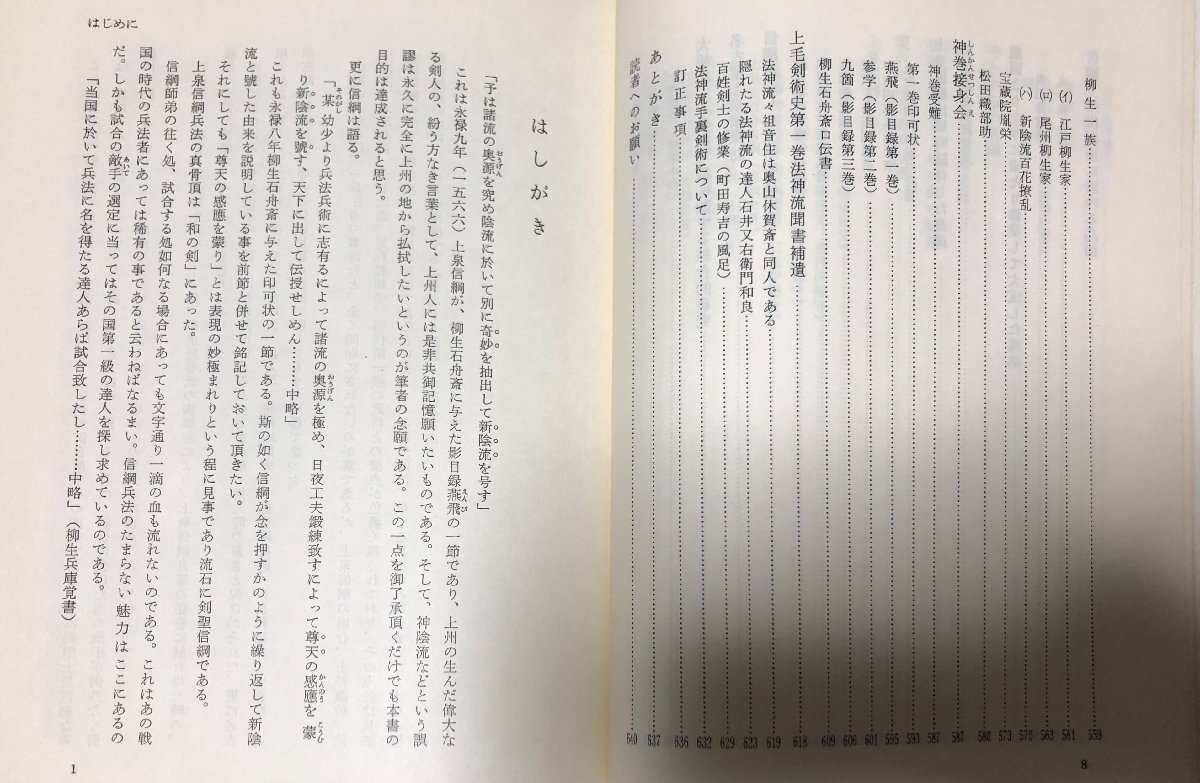 柳生一族……559
(イ) 江戸柳生家……561
(ロ) 尾州柳生家……563
(ハ) 新陰流百花撩乱……570
宝蔵院胤栄……573
松田織部助……580
神巻接身会……587
しんかんせつしんえ
神巻受難……587
第一巻印可状……593
燕飛(影目録第一巻)……595
参学(影目録第二巻)……601
九箇(影目録第三巻)……606
柳生石舟斎口伝書……609
上毛剣術史第一巻法神流聞書補遺……618
法神流々祖音住は奥山休賀斎と同人である……619
隠れたる法神流の達人石井又右衛門和良……623
百姓剣士の修業(町田寿吉の風足)……629
法神流手裏剣術について……632
訂正事項……636
あとがき……637
読者へのお願い……640
8
はじめに
はしがき
「予は諸流の奥源を究め陰流に於いて別に奇妙を抽出して新陰流を号す」
おうげん
これは永禄九年(一五六六)上泉信綱が、柳生石舟斎に与えた影目録燕飛の一節であり、上州の生んだ偉大な
えんぴ
る剣人の、紛う方なき言葉として、上州人には是非共御記憶願いたいものである。そして、神陰流などという誤
謬は永久に完全に上州の地から払拭したいというのが筆者の念願である。この一点を御了承頂くだけでも本書の
目的は達成されると思う。
更に信綱は語る。
「某 幼少より兵法兵術に志有るによって諸流の奥源を極め、日夜工夫鍛練致すによって尊天の感應を 蒙
それがし おうげん かんのう こうむ
り新陰流を號す、天下に出して伝授せしめん………中略」
これも永禄八年柳生石舟斎に与えた印可状の一節である。斯の如く信綱が念を押すかのように繰り返して新陰
流と號した由来を説明している事を前節と併せて銘記しておいて頂きたい。
それにしても「尊天の感應を蒙り」とは表現の妙極まれりという程に見事であり流石に剣聖信綱である。
上泉信綱兵法の真骨頂は「和の剣」にあった。
信綱師弟の往く処、試合する処如何なる場合にあっても文字通り一滴の血も流れないのである。これはあの戦
国の時代の兵法者にあっては稀有の事であると云わねばなるまい。信綱兵法のたまらない 魅力は ここにあるの
だ。しかも試合の敵手の選定に当ってはその国第一級の達人を探し求めているのである。
あいて
「当国に於いて兵法に名を得たる達人あらば試合致したし………中略」(柳生兵庫覚書)
1